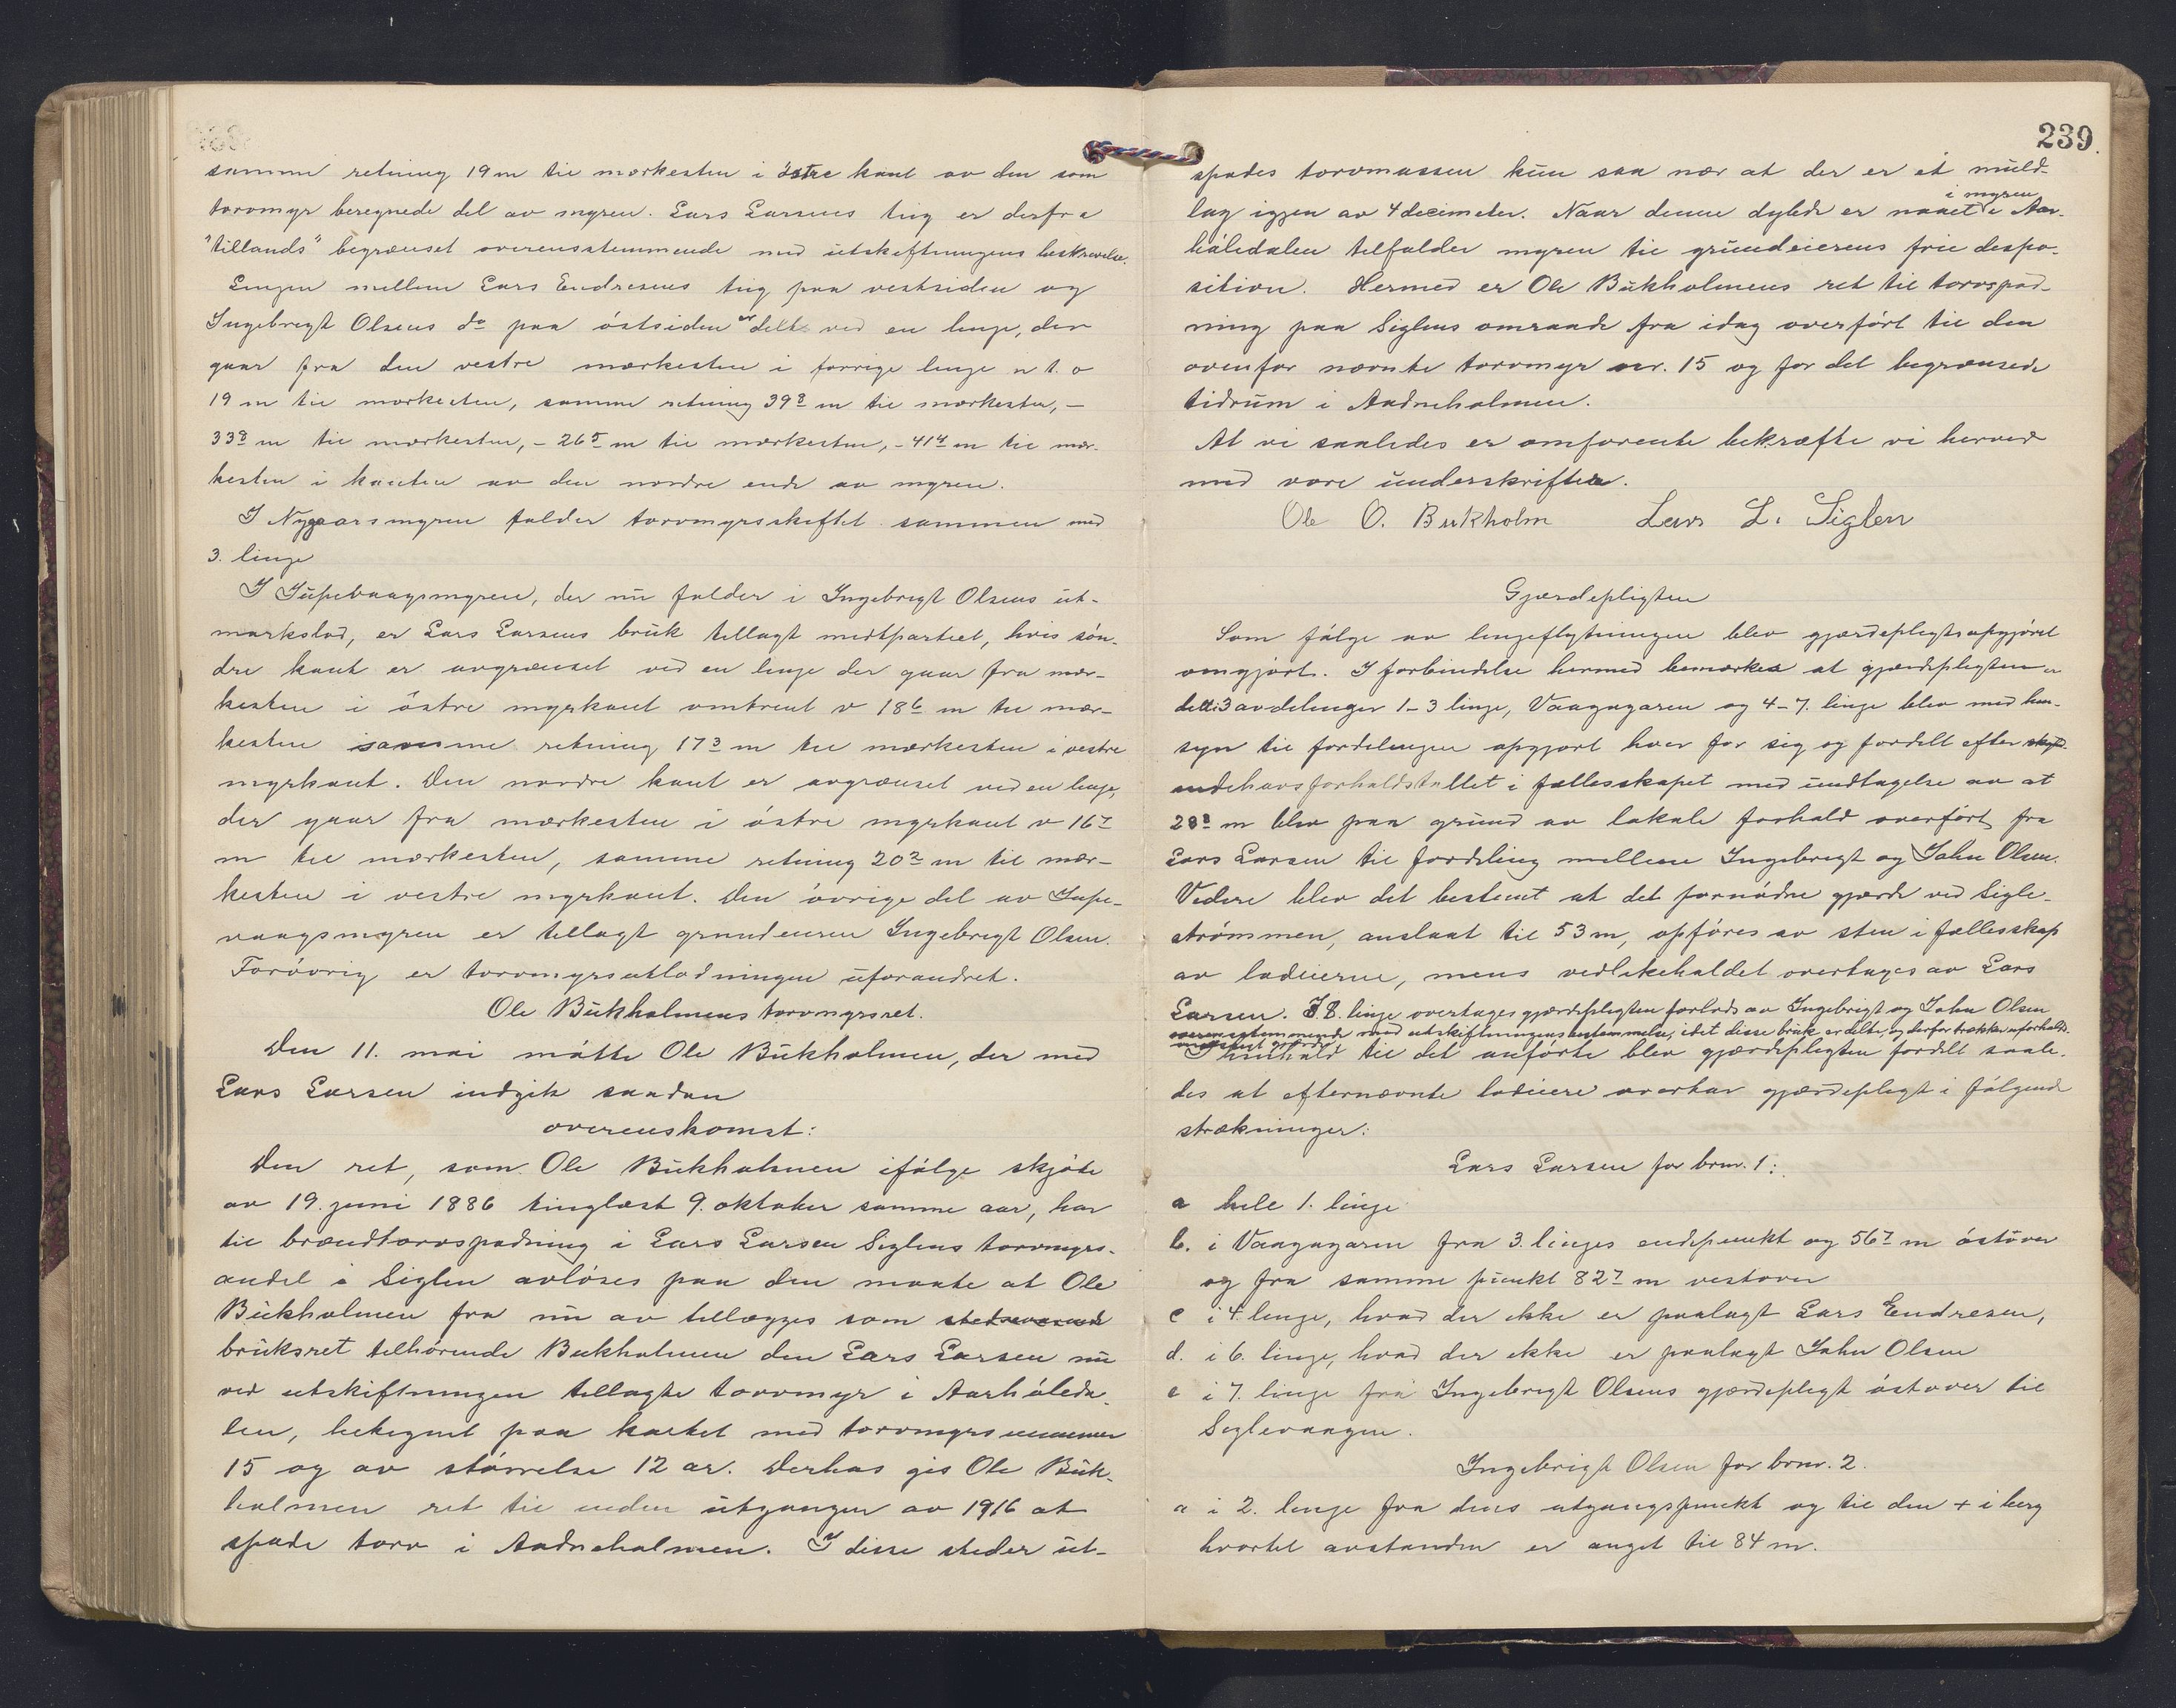 samme retning 19 m til merkesten i østre kant av den som
torvmyr beregnede del av myren. Lars Larsens teig er derfra
"tillands" begrænset overensstemmende med utskiftningens beskrivelse.
Linjen mellem Lars Endresens teig paa vestsiden og
Ingebregt Olsens do paa østsiden er delt ved en linje, der
gaar fra den vestre merkesten i forrige linje n t. o
19 m til merkesten, samme retning 39⁸ m til merkesten, –
33⁸ m til merkesten, – 26⁵ m til merkesten, – 41⁴ m til mer-
kesten i kanten av den nordre ende av myren.
I Nygaarsmyren falder torvmyrsskiftet sammen med
3. linje
I Jupevaagsmyren, der nu falder i Ingebregt Olsens ut-
markslod, er Lars Larsens bruk tillagt midtpartiet, hvis søn-
dre kant er avgrænset ved en linje der gaar fra mer-
kesten i østre myrkant omtrent v 18⁶ m til mer-
kesten samme retning 17³ m til merkesten i vestre
myrkant. Den nordre kant er avgrænset ved en linje,
der gaar fra merkesten i østre myrkant v 16⁷
m til merkesten, samme retning 20² m til mer-
kesten i vestre myrkant. Den øvrige del av Jupe-
vaagsmyren er tillagt grundeieren Ingebregt Olsen.
Forøvrig er torvmyrsutlodningen uforandret.
Ole Bukholmens torvmyrsret.
Den 11. mai møtte Ole Bukholmen, der med
Lars Larsen indgik saadan
overenskomst:
Den ret, som Ole Bukholmen ifølge skjøte
av 19. juni 1886 tinglæst 9. oktober samme aar, har
til brændtorvspadning i Lars Larsen Siglens torvmyrs-
andel i Siglen avløses paa den maate at Ole
Bukholmen fra nu av tillægges som stedsevarende
bruksret tilhørende Bukholmen den Lars Larsen nu
ved utskiftningen tillagte torvmyr i Aarhåleda-
len, betegnet paa kartet med torvmyrsnummer
15 og av størrelse 12 ar. Derhos gis Ole Buk-
holmen ret til inden utgangen av 1916 at
spade torv i Andneholmen. I disse steder ut-
239.
spades torvmassen kun saa nær at der er et muld-
lag igjen av 4 decimeter. Naar denne dybde er naaet i myren i Aar-
håledalen tilfalder myren til grundeierens frie dispo-
sition. Hermed er Ole Bukholmens ret til torvspad-
ning paa Siglens omraade fra idag overført til den
ovenfor nævnte torvmyr nr. 15 og for det begrænsede
tidrum i Andneholmen.
At vi saaledes er omforente bekræfte vi herved
med vore underskrifter.
Ole O. Bukholm Lars L. Siglen
Gjærdepligten
Som følge av linjeflytningen blev gjærdepligtsopgjøret
omgjort. I forbindelse hermed bemærkes at gjærdepligten er
delt i 3 avdelinger 1–3 linje, Vaagagaren og 4–7. linje blev med hen-
syn til fordelingen opgjort hver for sig og fordelt efter skyld-
andehavsforholdstallet i fællesskapet med undtagelse av at
28⁸ m blev paa grund av lokale forhold overført fra
Lars Larsen til fordeling mellem Ingebregt og John Olsen.
Videre blev det bestemt at det fornødne gjærde ved Sigle-
strømmen, anslaat til 53 m, opføres av sten i fællesskap
av lodeierne, mens vedlikeholdet overtages av Lars
Larsen. I 8. linje overtages gjærdepligten forlods av Ingebrigt og John Olsen
overensstemmende med utskiftningens bestemmelse, idet disse bruk er delte, og derfor trækker uforholds-
mæssigt gjærder
I henhold til det anførte blev gjærdepligten fordelt saale-
des at efternævnte lodeiere overtar gjærdepligt i følgende
strækninger:
Lars Larsen for brnr. 1:
a hele 1. linje
b. i Vaagagaren fra 3. linjes endepunkt og 56⁷ m østover
og fra samme punkt 82⁷ m vestover
c i 4. linje, hvad der ikke er paalagt Lars Endresen,
d. i 6. linje, hvad der ikke er paalagt John Olsen
e i 7. linje fra Ingebregt Olsens gjærdepligt østover til
Siglevaagen.
Ingebrigt Olsen for brnr. 2.
a i 2. linje fra dens utgangspunkt og til den + i berg
hvortil avstanden er anget til 84 m.